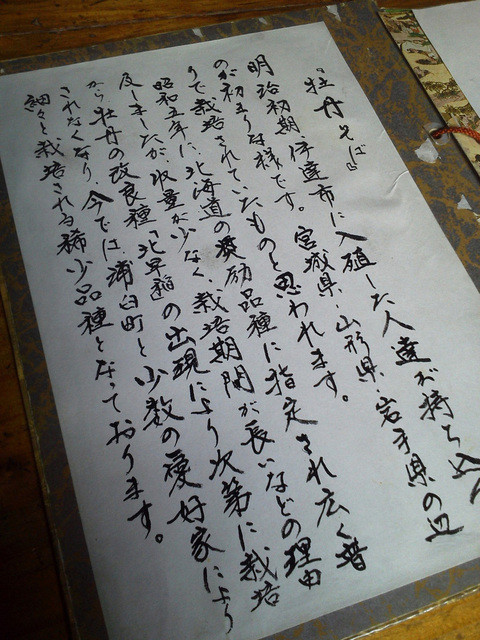 『牡丹そば』
明治初期伊達市に入植した人達が持ち込んだ
のが初まりな様です。宮城県・山形県・岩手県の辺
りで栽培されていたものと思われます。
昭和五年に、北海道の奨励品種に指定され広く普
及しましたが、収量が少なく、栽培期間が長いなどの理由
から牡丹の改良種「北早稲」の出現により次第に栽培
されなくなり、今では、浦臼町と少数の愛好家により
細々と栽培される稀少品種となっております。